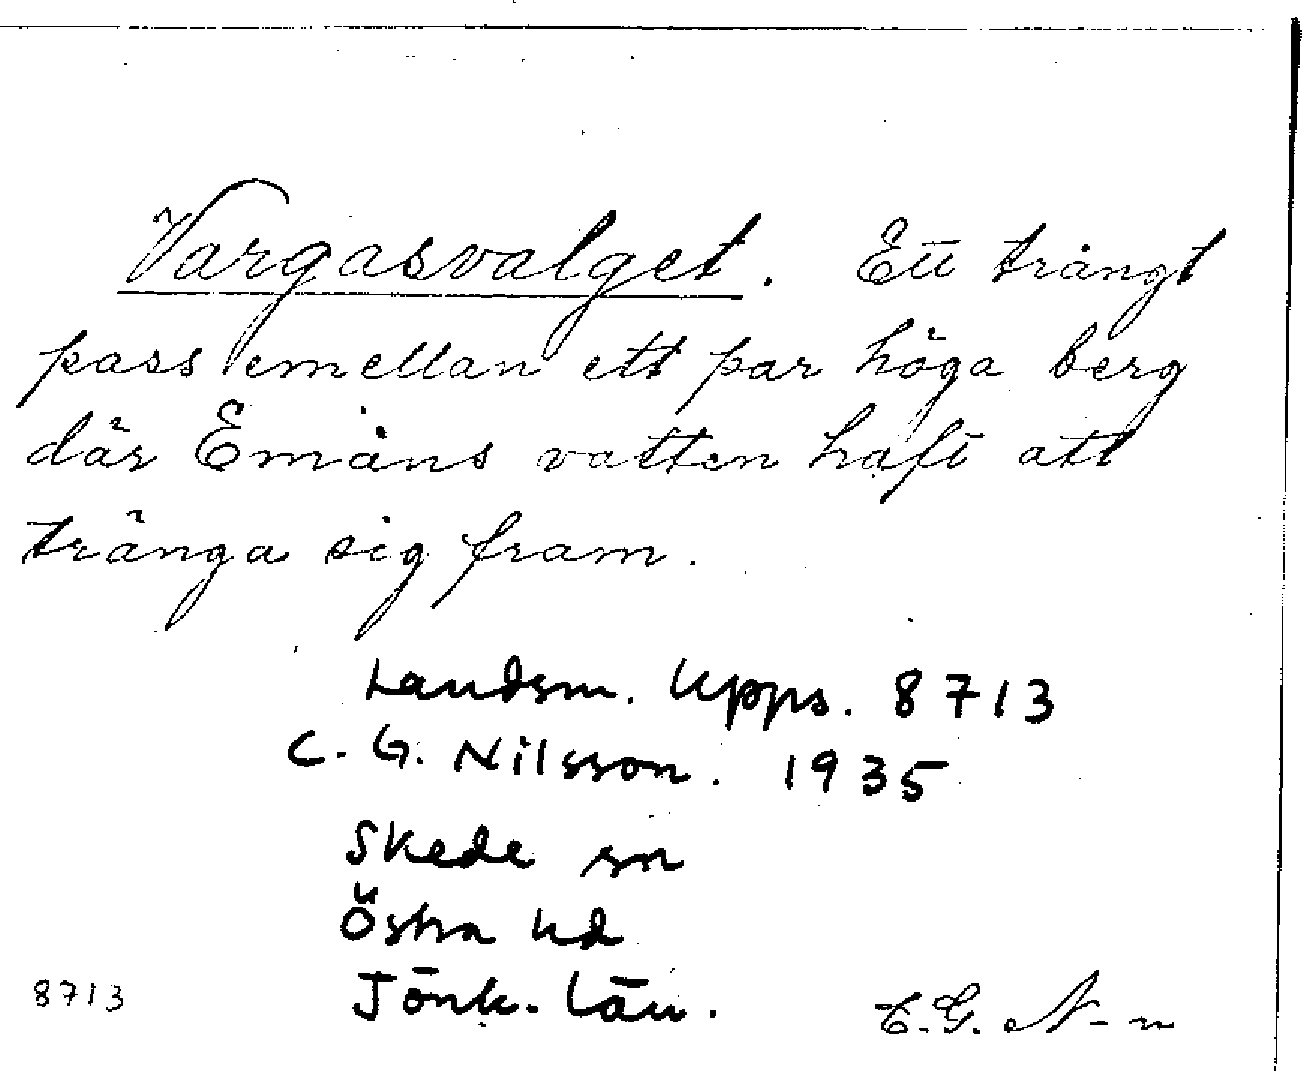 Vargasvalget. Ett trångt
pass emellan ett par höga berg
där Emåns vatten haft att
tränga sig fram.
Landsm. Upps. 8713
C. G. Nilsson. 1935
Skede sn
Östra hd
Jönk. län.
8713 C. G. N-n